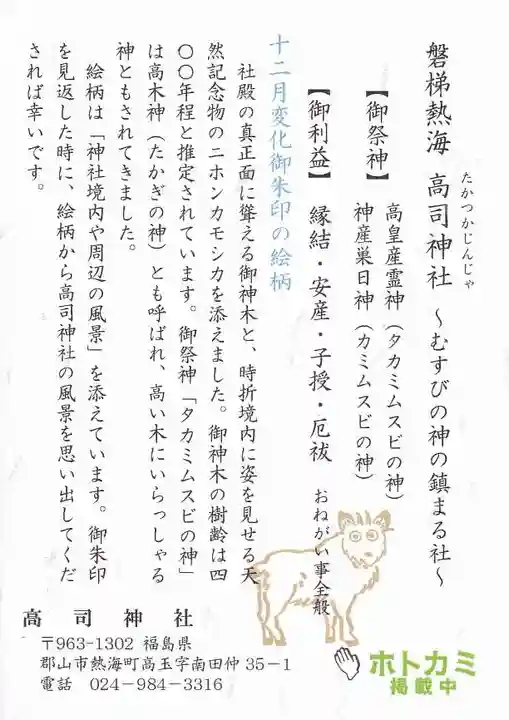 たかつかじんじゃ
磐梯熱海 高司神社 ～むすびの神の鎮まる社～
【御祭神】 高皇産霊神（タカミムスビの神）
神産巣日神（カミムスビの神）
【御利益】 縁結・安産・子授・厄祓 おねがい事全般
十二月変化御朱印の絵柄
社殿の真正面に聳える御神木と、時折境内に姿を見せる天
然記念物のニホンカモシカを添えました。御神木の樹齢は四
〇〇年程と推定されています。御祭神「タカミムスビの神」
は高木神（たかぎの神）とも呼ばれ、高い木にいらっしゃる
神ともされてきました。
絵柄は「神社境内や周辺の風景」を添えています。御朱印
を見返した時に、絵柄から高司神社の風景を思い出してくだ
されば幸いです。
高司神社
〒963-1302 福島県
郡山市熱海町高玉字南田仲35-1
電話 024-984-3316
ホトカミ
掲載中